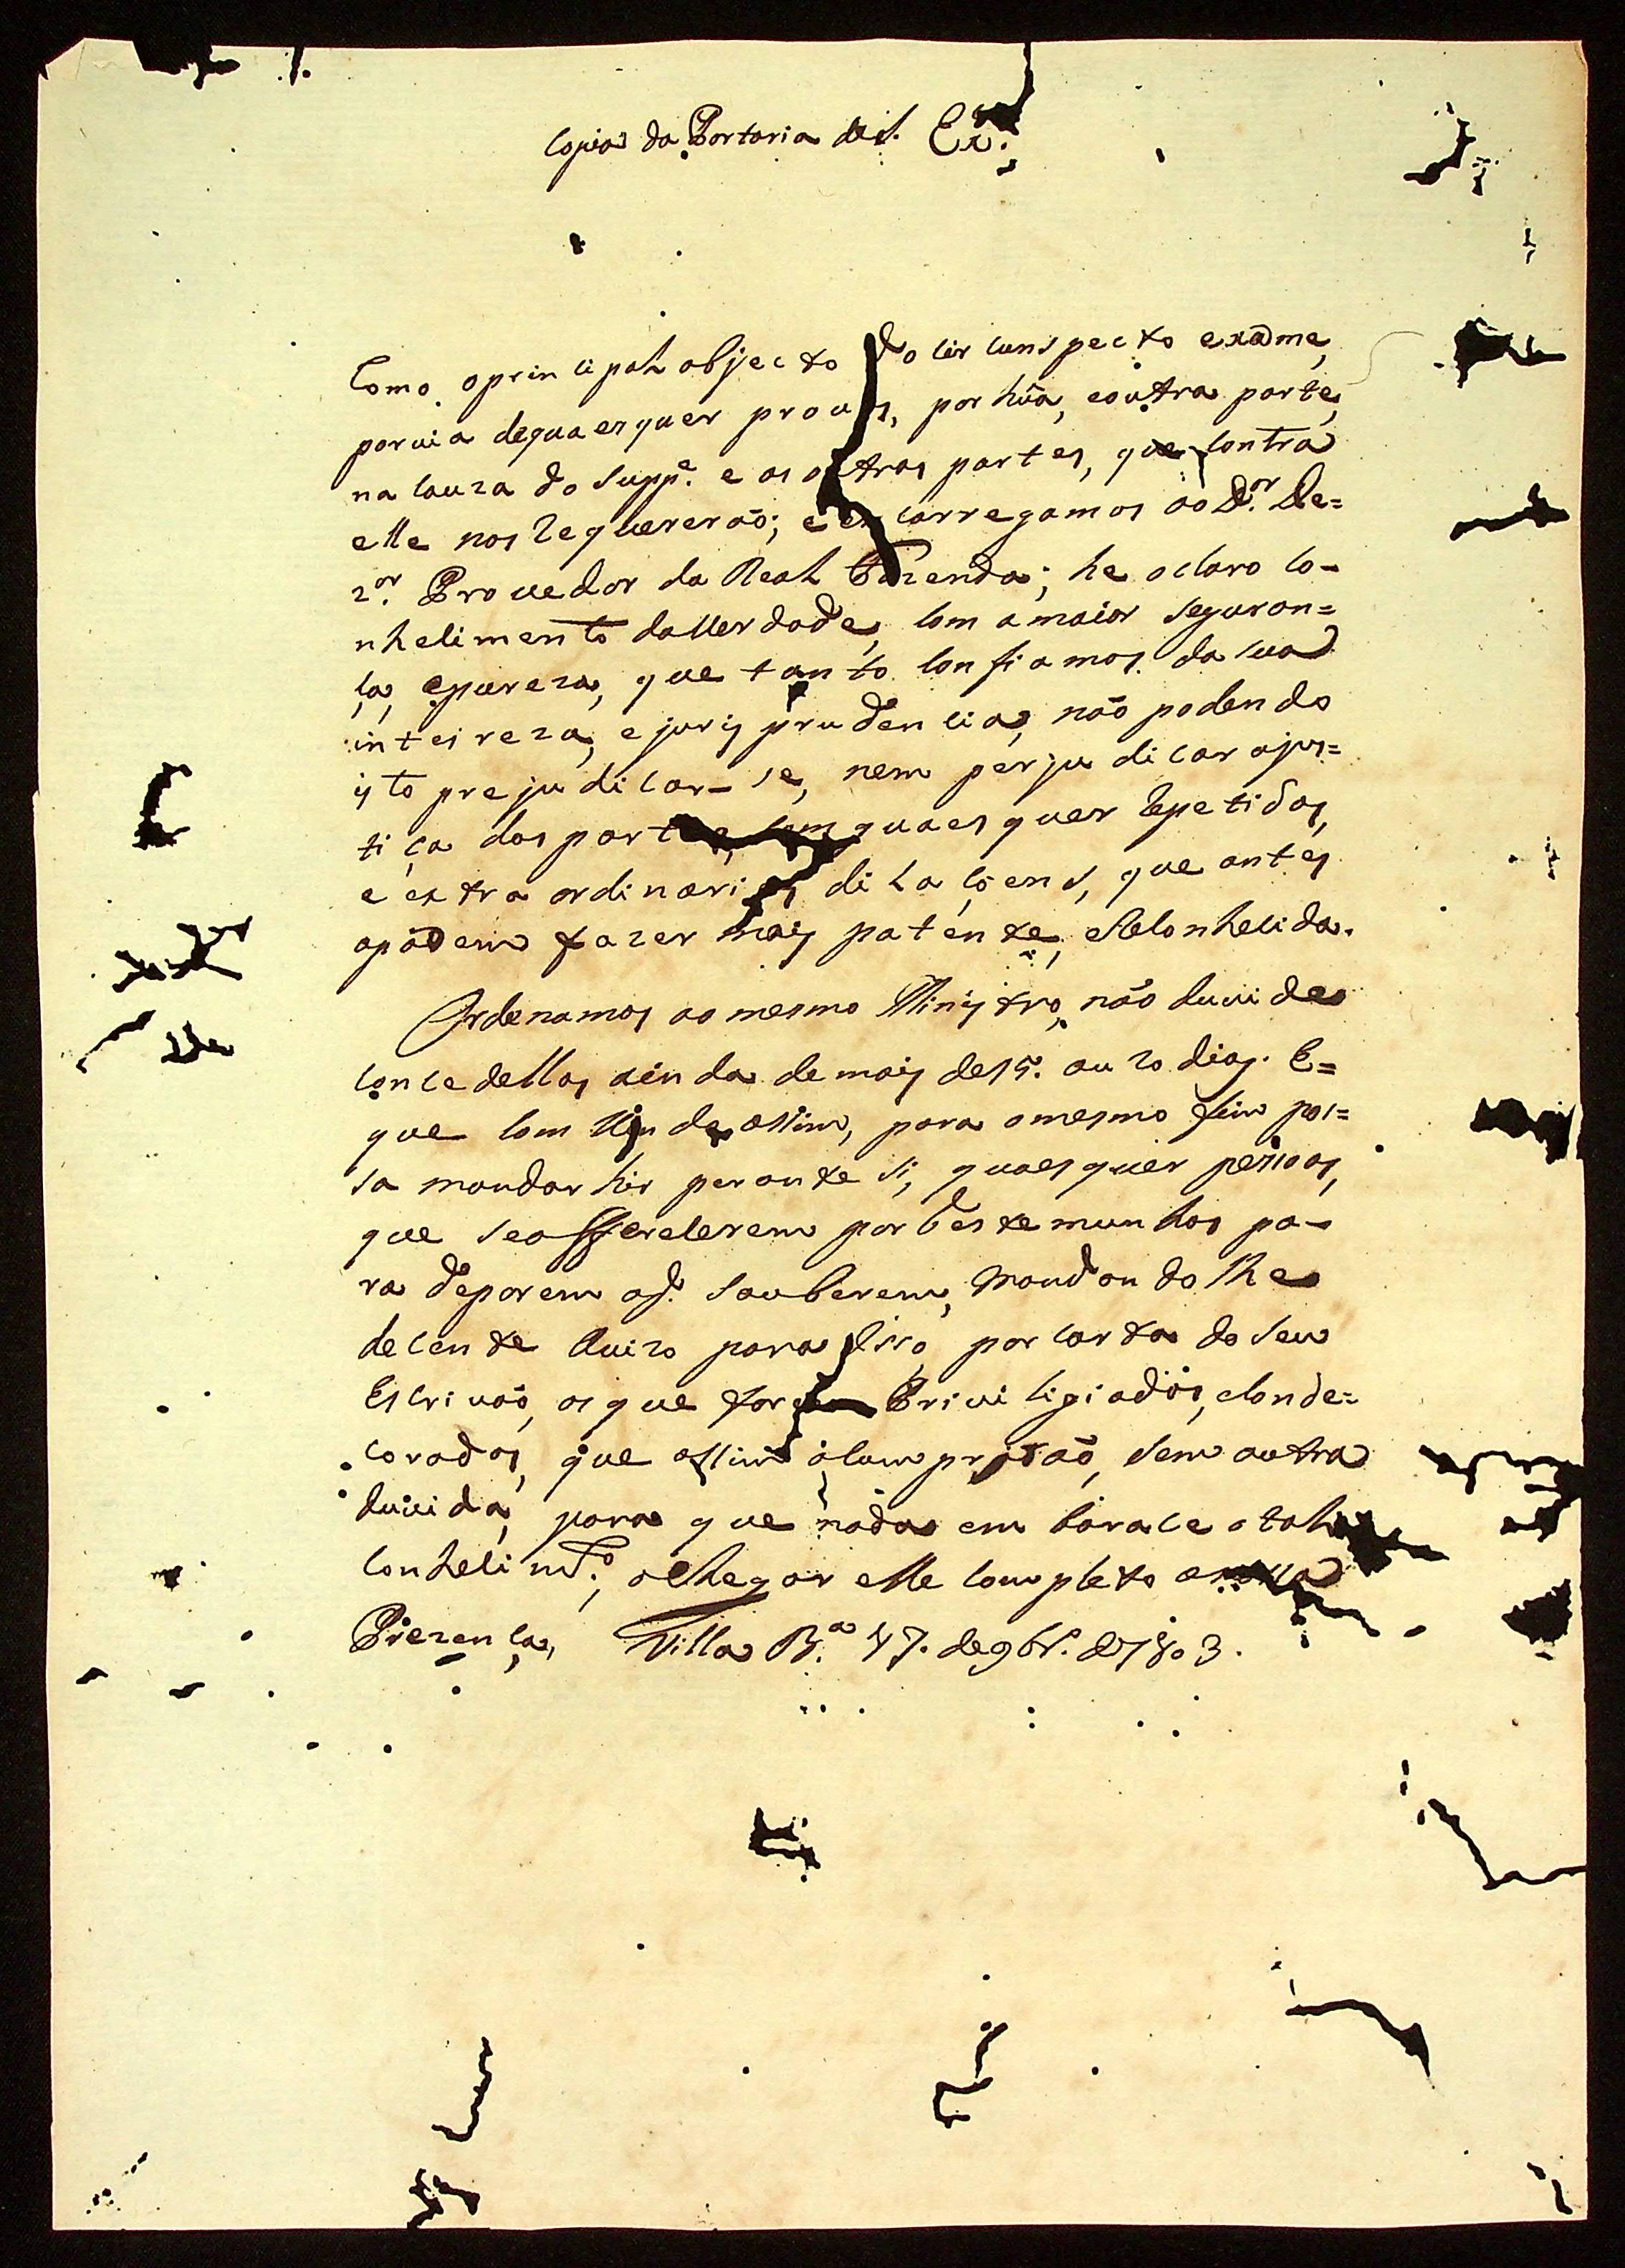 Copia da Portaria de S. Ex.
Como o principal objecto do circunspecto exáme,
por via de quaesquer provas, por hũa, e outra parte,
na cauza do Supp.e e as outras partes, que contra
elle nos requererão; e encarregamos ao D.or De=
z.or Provedor da Real Fazenda; he o claro co-
nhecimento da Verdade, com a maior seguran=
ça, e pureza, que tanto confiamos da sua
inteireza, e jurisprudencia, não podendo
isto prejudicar-se, nem perjudicar a jus=
tiça das partes, com quaesquer repetidas,
e extraordinarias dilaçoens, que antes
apódem fazer mais patente, e Reconhecida.
Ordenamos ao mesmo Ministro, não duvide
concedellas ainda de mais de 15. ou 20 dias. E=
que com Vin de assim, para o mesmo fim pos=
sa mandar hir perante si, quaesquer pessoas,
que se offerecerem por Testemunhas pa-
ra deporem o q. souberem, Mandandolhe
decente Avizo para isso, por carta do seu
Escrivão, as que forem Priviligiadas, e conde=
coradas, que assim o cumprirão, sem outra
duvida, para que nada embarace o tal
conhecim.to, e chegar elle completo a nossa
Prezença, Villa B.a 17. de 9br.o de 1803.